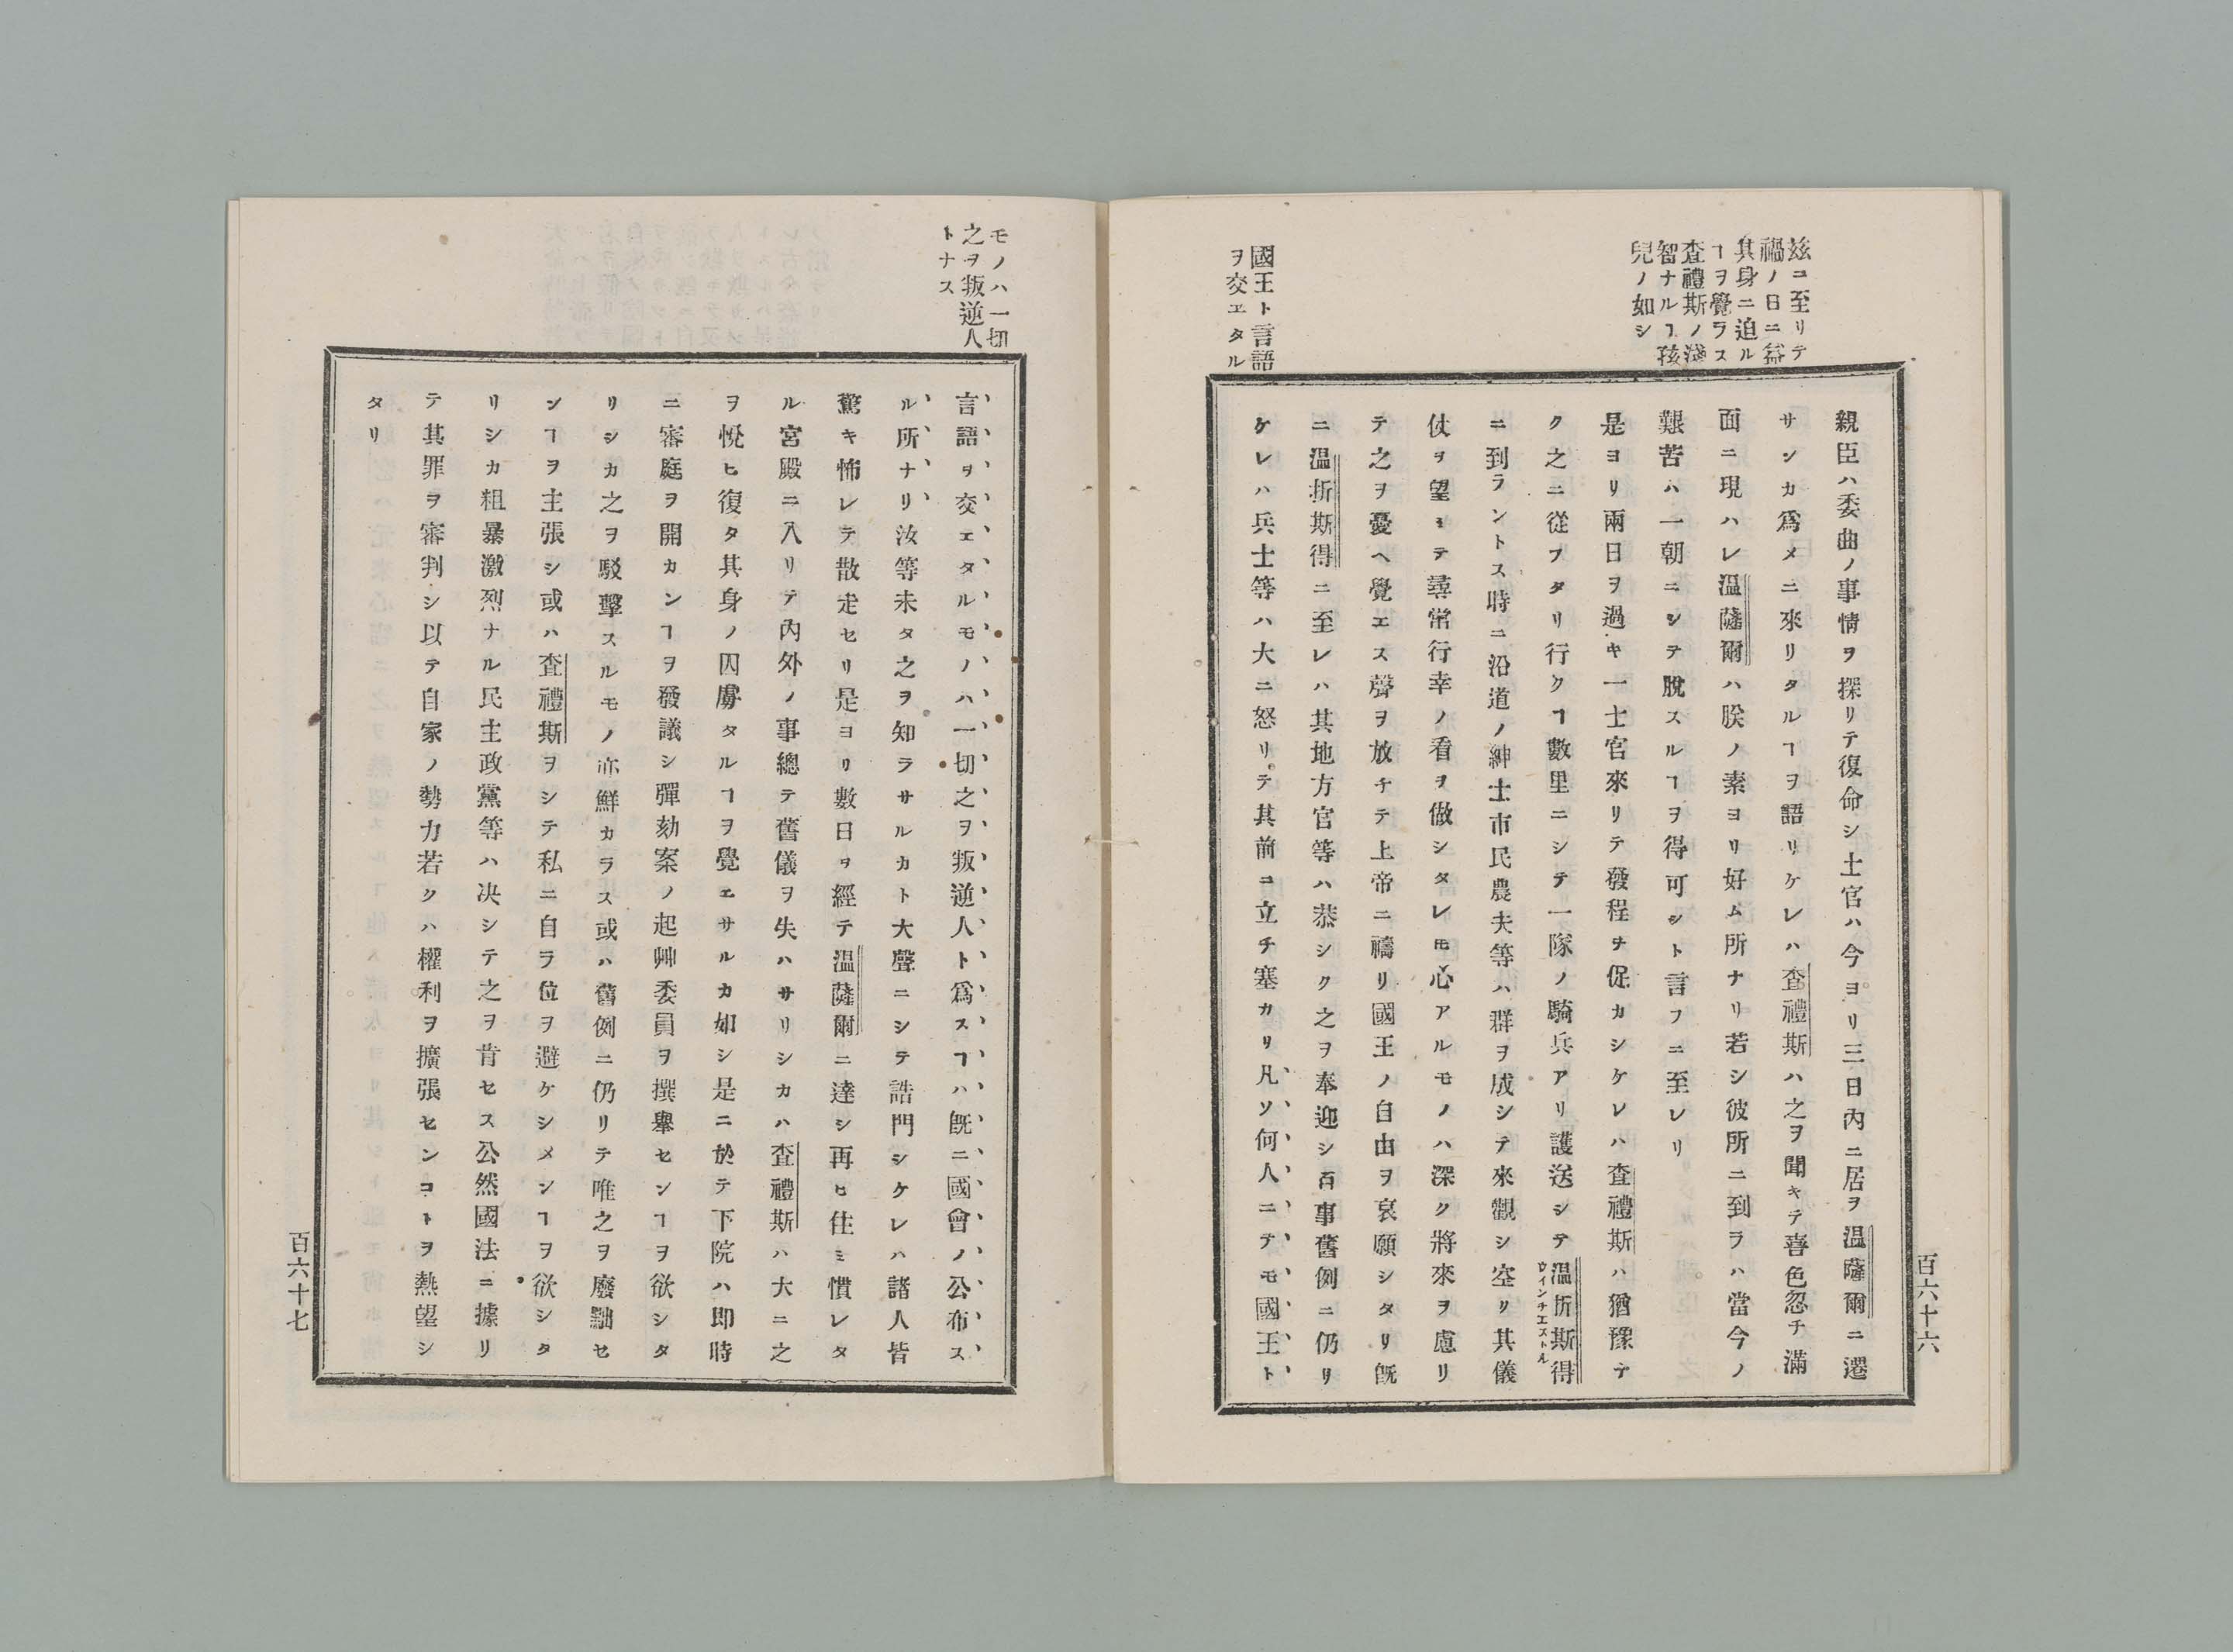 茲ニ至リテ
禍ノ日ニ益
其身ニ迫ル
ヿヲ覺ラス
査禮斯ノ淺
智ナルヿ孩
兒ノ如シ
國王ト言語
ヲ交エタル
親臣ハ委曲ノ事情ヲ探リテ復命シ士官ハ今ヨリ三日內ニ居ヲ温薩爾ニ遷
サンカ爲メニ來リタルヿヲ語リケレハ査禮斯ハ之ヲ聞キテ喜色忽チ滿
面ニ現ハレ温薩爾ハ朕ノ素ヨリ好ム所ナリ若シ彼所ニ到ラハ當今ノ
艱苦ハ一朝ニシテ脫スルヿヲ得可シト言フニ至レリ
是ヨリ兩日ヲ過キ一士官來リテ發程ヲ促カシケレハ査禮斯ハ猶豫テ
ク之ニ從フタリ行クヿ數里ニシテ一隊ノ騎兵アリ護送シテ温折斯得
ウインチエストル
ニ到ラントス時ニ沿道ノ紳士市民農夫等ハ群ヲ成シテ來觀シ空リ其儀
仗ヲ望ミテ尋常行幸ノ看ヲ做シタレㇳモ心アルモノハ深ク將來ヲ慮リ
テ之ヲ憂ヘ覺エス聲ヲ放チテ上帝ニ禱リ國王ノ自由ヲ哀願シタリ旣
ニ温折斯得ニ至レハ其地方官等ハ恭シク之ヲ奉迎シ百事舊例ニ仍リ
ケレハ兵士等ハ大ニ怒リテ其前ニ立チ塞カリ凡ソ何人ニテモ國王ト
百六十六
モノハ一切
之ヲ叛逆人
トナス
言語ヲ交エタルモノハ一切之ヲ叛逆人ト爲スヿハ旣ニ國會ノ公布ス
ル所ナリ汝等未タ之ヲ知ラサルカト大聲ニシテ誥問シケレハ諸人皆
驚キ怖レテ散走セリ是ヨリ數日ヲ經テ温薩爾ニ達シ再ヒ住ミ慣レタ
ル宮殿ニ入リテ內外ノ事總テ舊儀ヲ失ハサリシカハ査禮斯ハ大ニ之
ヲ悅ヒ復タ其身ノ囚虜タルヿヲ覺エサルカ如シ是ニ於テ下院ハ即時
ニ審庭ヲ開カンヿヲ發議シ彈劾案ノ起艸委員ヲ撰擧センヿヲ欲シタ
リシカ之ヲ駁擊スルモノ亦鮮カラス或ハ舊例ニ仍リテ唯之ヲ廢黜セ
ンヿヲ主張シ或ハ査禮斯ヲシテ私ニ自ラ位ヲ避ケシメンヿヲ欲シタ
リシカ粗暴激烈ナル民主政黨等ハ决シテ之ヲ肯セス公然國法ニ據リ
テ其罪ヲ審判シ以テ自家ノ勢力若クハ權利ヲ擴張センコトヲ熱望シ
タリ
百六十七